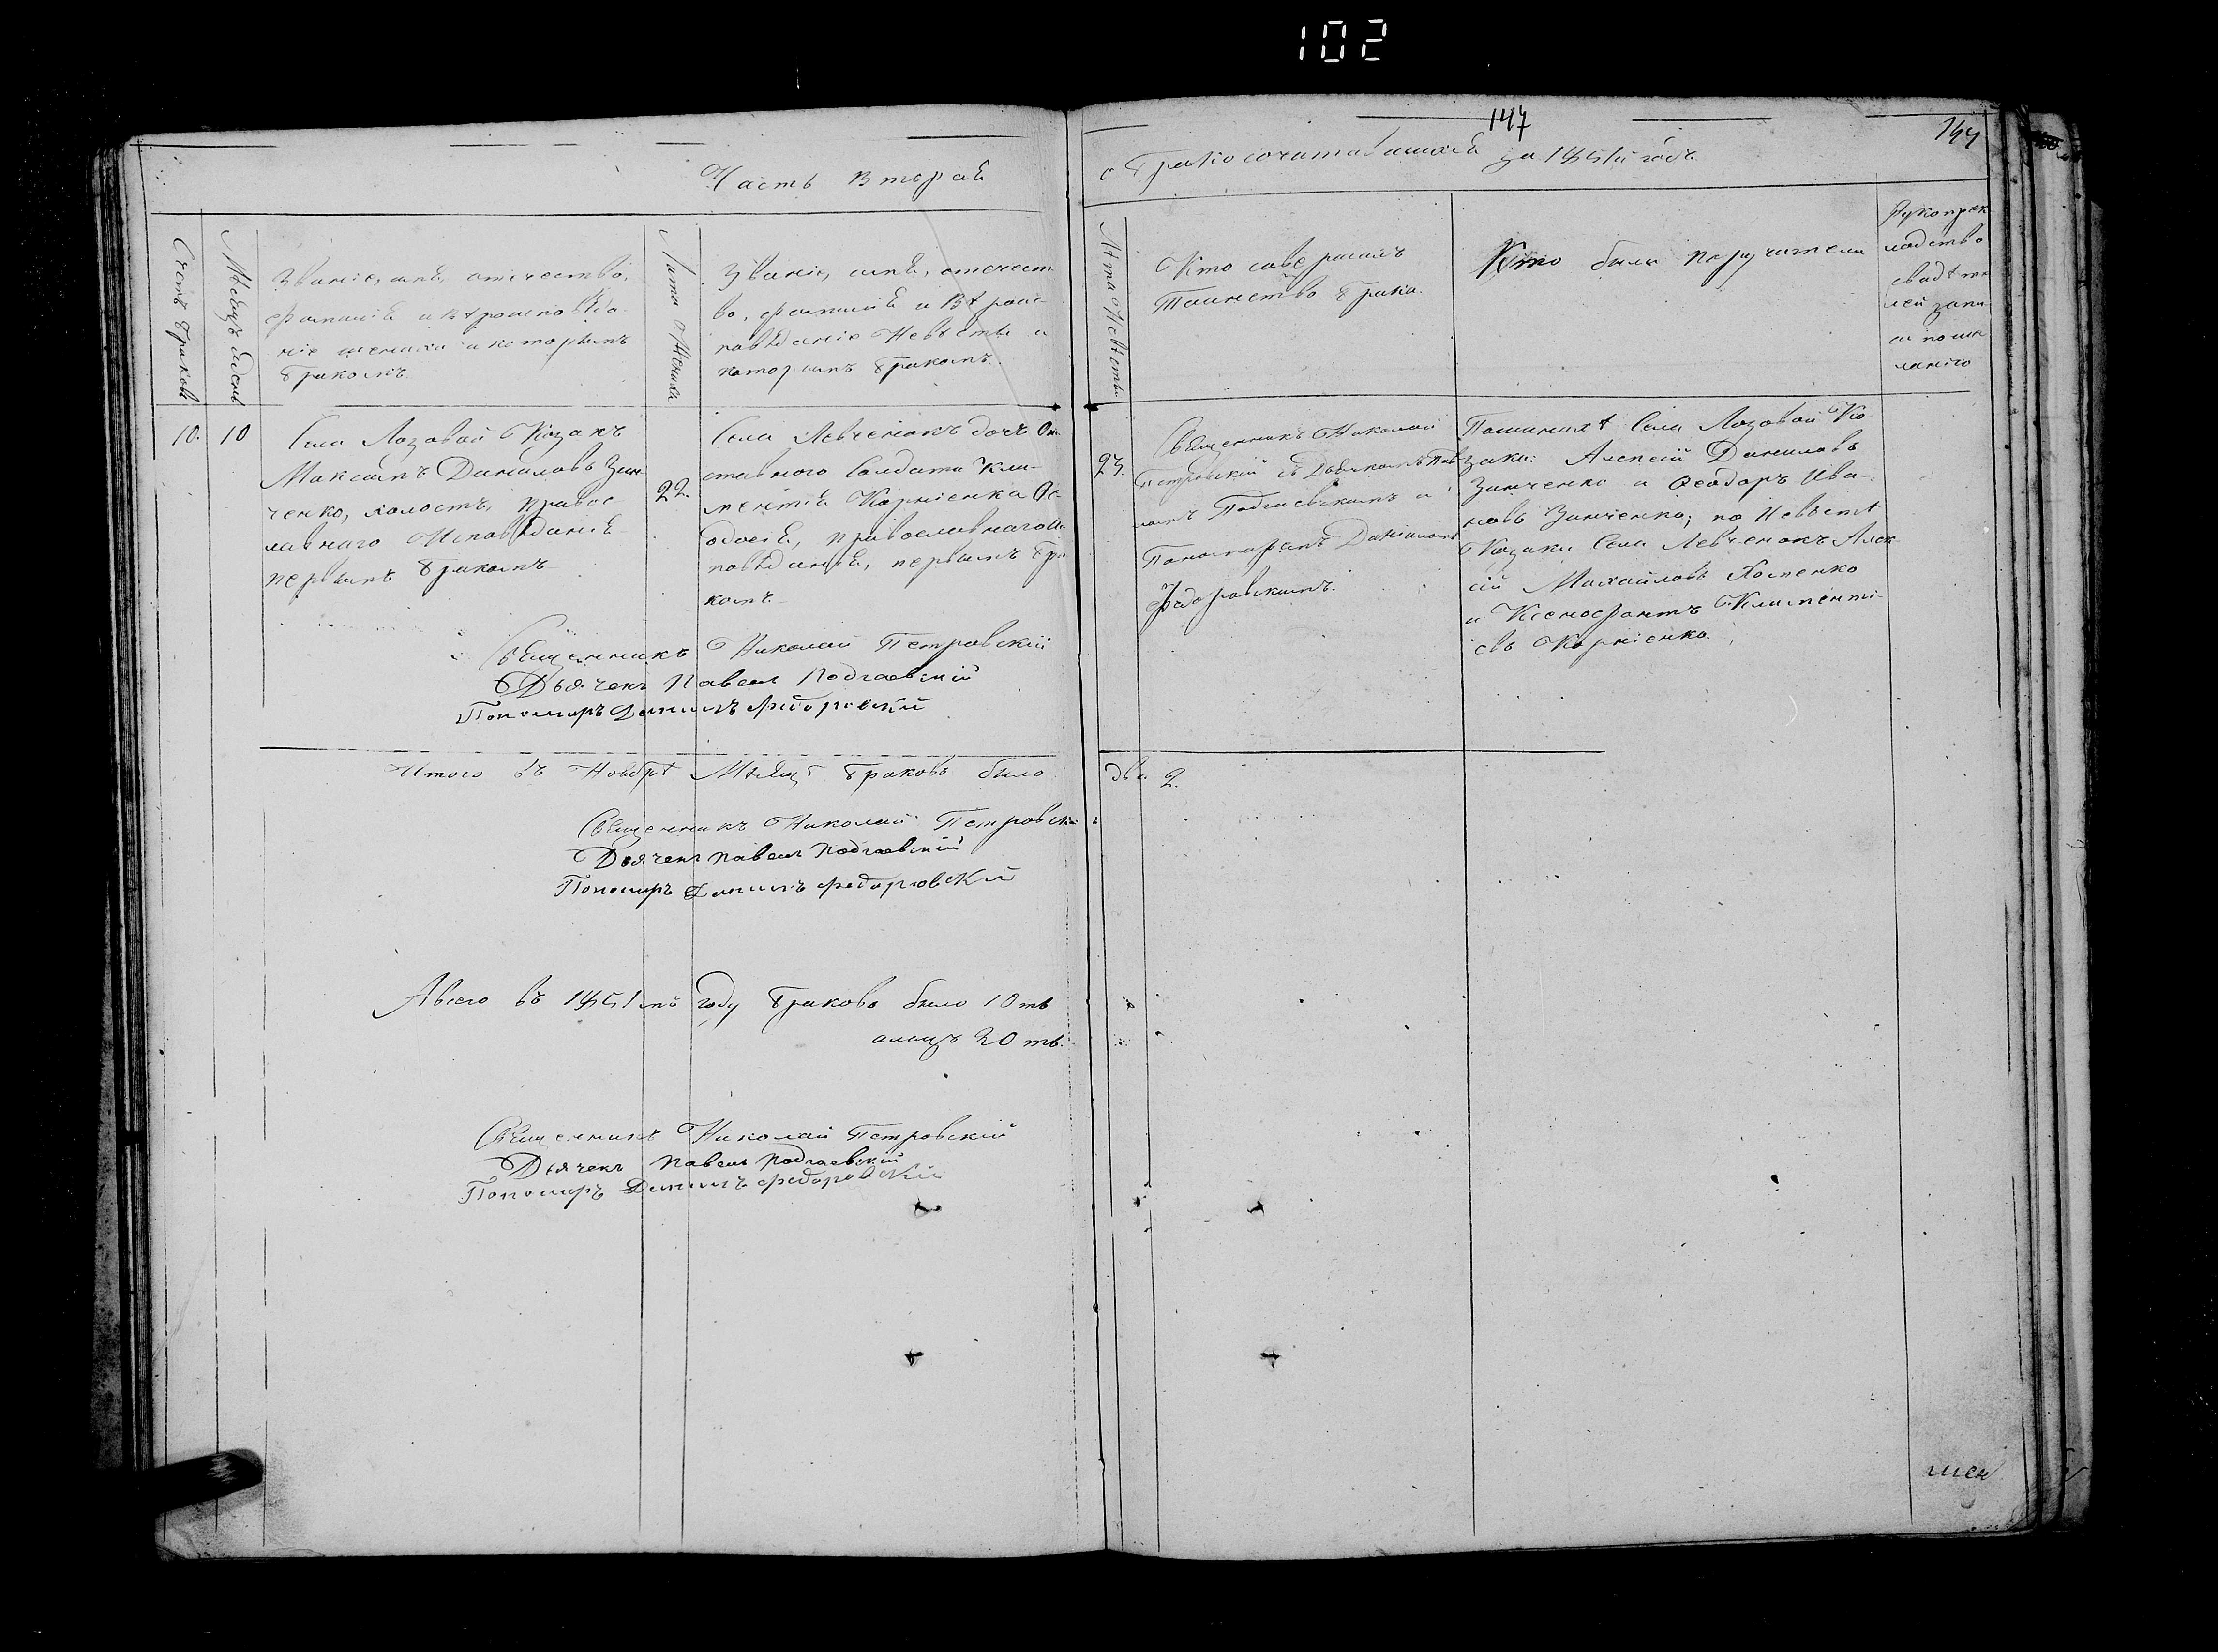 102
147
Часть Вторая
о Бракосочитавшихся за 1851й годъ
Счетъ браковъ
Мѣсяцъ и день
Званіе, имя, отечество,
фамилія и вѣроисповѣда-
ніе жениха и которымъ
бракомъ
Лѣта Жениха
Званіе, имя, отечест-
во, фамилія и вѣроис-
повѣданіе Невѣсты и
которымъ бракомъ.
Лѣта Невѣсты
Кто совершилъ
Таинство брака.
Кто были поручители
Рукоприк
ладство
свидѣте
лей запи
си по же
ланію
10. 10
Села Лозовой Козакъ
Максимъ Даниловъ Зин
ченко, холостъ, правос
лавнаго Исповѣданія
первымъ бракомъ
22.
Села Левченокъ дочь От
ставного Солдата Кли-
ментія Корніенка Ѳе
одосія, православнаго Ис
повѣданія, первымъ бра
комъ
23.
Священникъ Николай
Петровскій съ Дьячкомъ Пав
ломъ Подгаевскимъ и
Пономаремъ Даніиломъ
Федоровскимъ.
По женихѣ Села Лозовой Ко
заки: Алексій Даниловъ
Зинченко и Ѳеодоръ Ива-
новъ Зинченко; по Невѣстѣ
Козаки Села Левченокъ Алек
сій Михайловъ Хоменко
и Ксенофонтъ Клименті-
евъ Корніенко.
Священникъ Николай Петровскій
Дьячекъ Павелъ Подгаевскій
Пономарь Данилъ Федоровскій
Итого въ Ноябрѣ Мѣсяцѣ браковъ было два 2.
Священникъ Николай Петровскій
Дьячекъ Павелъ Подгаевскій
Пономарь Данилъ Федоровскій
А всего въ 1851мъ году браковъ было 10ть
а лицъ 20ть.
Священникъ Николай Петровскій
Дьячекъ Павелъ Подгаевскій
Пономарь Данилъ Федоровскій